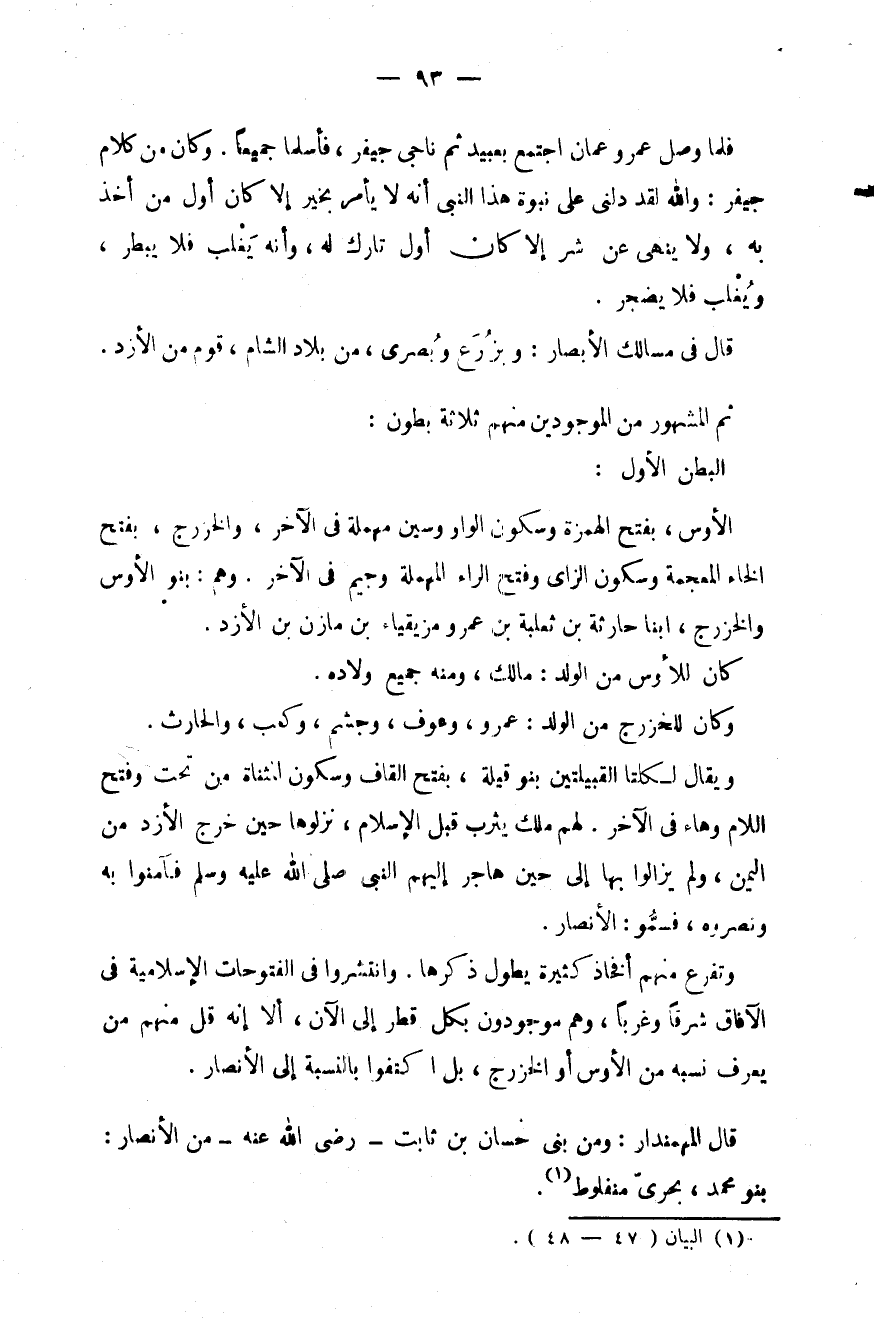 — ٩٣ —
فلما وصل عمرو عمان اجتمع بعبيد ثم ناجى جيفر ، فأسلما جميعاً . وكان من كلام
جيفر : والله لقد دلنى على نبوة هذا النبى أنه لا يأمر بخير إلا كان أول من أخذ
به ، ولا ينهى عن شر إلا كان أول تارك له ، وأنه يَغْلب فلا يبطر ،
ويُغْلب فلا يضجر .
قال فى مسالك الأبصار : وبزُرَع وبُصرى ، من بلاد الشام ، قوم من الأزد .
ثم المشهور من الموجودين منهم ثلاثة بطون :
البطن الأول :
الأوس ، بفتح الهمزة وسكون الواو وسين مهملة فى الآخر ، والخزرج ، بفتح
الخاء المعجمة وسكون الزاى وفتح الراء المهملة وجيم فى الآخر . وهم : بنو الأوس
والخزرج ، ابنا حارثة بن ثعلبة بن عمرو مزيقياء بن مازن بن الأزد .
كان للأوس من الولد : مالك ، ومنه جميع ولاده .
وكان للخزرج من الولد : عمرو ، وعوف ، وجشم ، وكعب ، والحارث .
ويقال لكلتا القبيلتين بنو قيلة ، بفتح القاف وسكون المثناة من تحت وفتح
اللام وهاء فى الآخر . لهم ملك يثرب قبل الإسلام ، نزلوها حين خرج الأزد من
اليمن ، ولم يزالوا بها إلى حين هاجر إليهم النبى صلى الله عليه وسلم فآمنوا به
ونصروه ، فسمُّو : الأنصار .
وتفرع منهم أفخاذ كثيرة يطول ذكرها . وانتشروا فى الفتوحات الإسلامية فى
الآفاق شرقاً وغرباً ، وهم موجودون بكل قطر إلى الآن ، ألا إنه قل منهم من
يعرف نسبه من الأوس أو الخزرج ، بل اكتفوا بالنسبة إلى الأنصار .
قال المهمندار : ومن بنى حسان بن ثابت – رضى الله عنه – من الأنصار :
بنو محمد ، بحرىّ منفلوط(١) .
(١) البيان ( ٤٧ — ٤٨ ) .